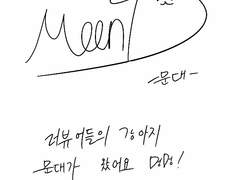 Meen
=문대-
러뷰어들의 강아지
문대가 왔어요 멍멍!